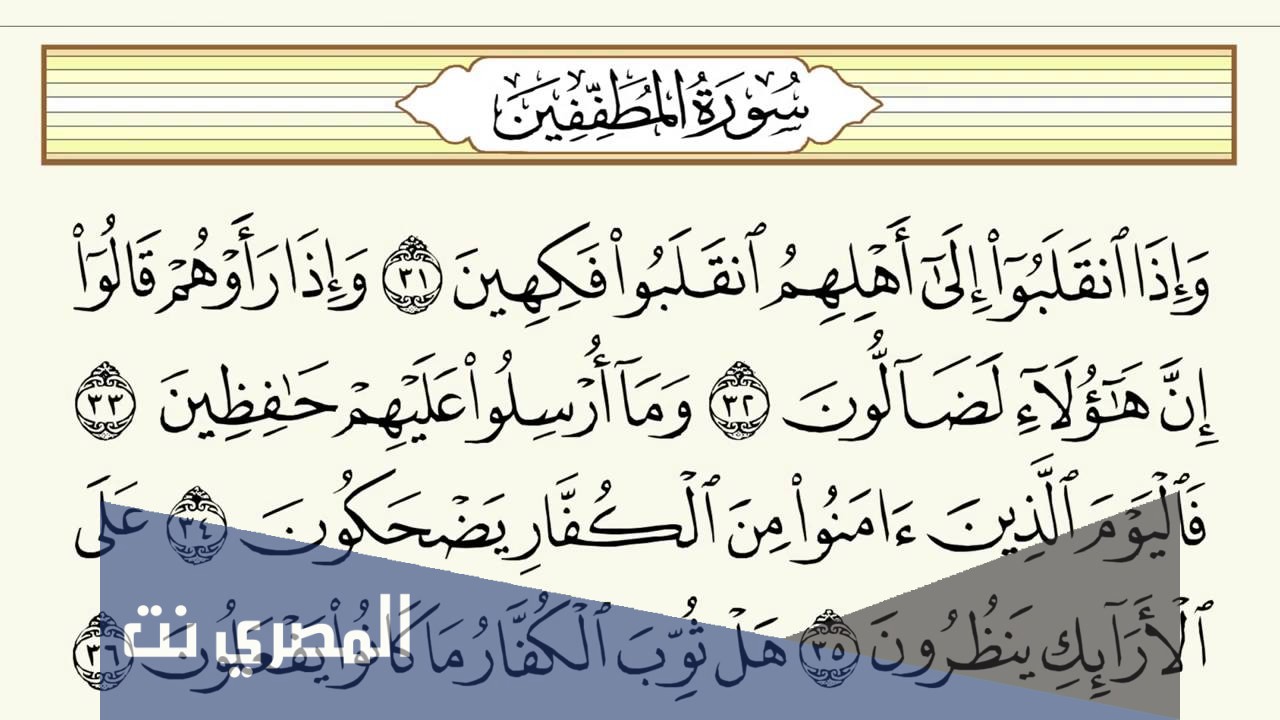 سُورَةُ الْمُطَفِّفِينَ
وَإِذَا ٱنقَلَبُوٓا۟ إِلَىٰٓ أَهْلِهِمُ ٱنقَلَبُوا۟ فَكِهِينَ ٣١ وَإِذَا رَأَوْهُمْ قَالُوٓا۟
إِنَّ هَٰٓؤُلَآءِ لَضَآلُّونَ ٣٢ وَمَآ أُرْسِلُوا۟ عَلَيْهِمْ حَٰفِظِينَ ٣٣
فَٱلْيَوْمَ ٱلَّذِينَ ءَامَنُوا۟ مِنَ ٱلْكُفَّارِ يَضْحَكُونَ ٣٤ عَلَى
ٱلْأَرَآئِكِ يَنظُرُونَ ٣٥ هَلْ ثُوِّبَ ٱلْكُفَّارُ مَا كَانُوا۟ يَفْعَلُونَ ٣٦
المصري نت